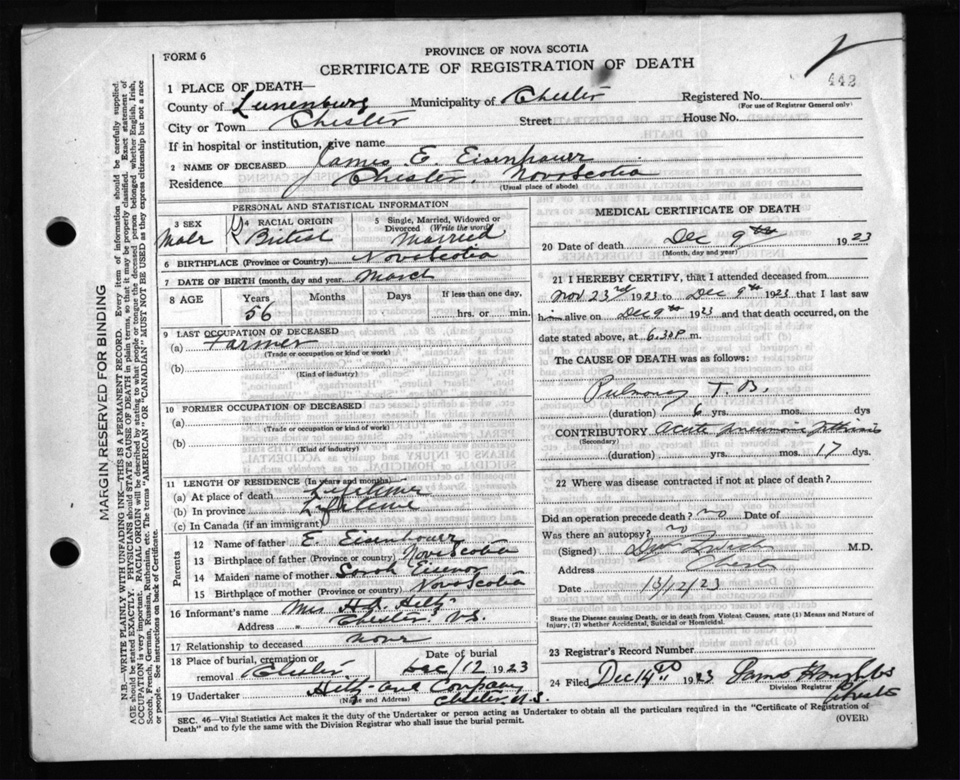 PROVINCE OF NOVA SCOTIA
FORM 6
CERTIFICATE OF REGISTRATION OF DEATH
442
1 PLACE OF DEATH—
County of Lunenburg Municipality of Chester Registered No.
(For use of Registrar General only)
City or Town Chester Street House No.
If in hospital or institution, give name
2 NAME OF DECEASED James E. Eisenhauer
Residence Chester, Nova Scotia
(Usual place of abode)
PERSONAL AND STATISTICAL INFORMATION
3 SEX Male
4 RACIAL ORIGIN British
5 Single, Married, Widowed or Divorced (Write the word) Married
6 BIRTHPLACE (Province or Country) Nova Scotia
7 DATE OF BIRTH (month, day and year) March
8 AGE Years Months Days If less than one day,
56 hrs. or min.
9 LAST OCCUPATION OF DECEASED
(a) Farmer
(Trade or occupation or kind or work)
(b)
(Kind of industry)
10 FORMER OCCUPATION OF DECEASED
(a)
(Trade or occupation or kind or work)
(b)
(Kind of industry)
11 LENGTH OF RESIDENCE (In years and months)
(a) At place of death Lifetime
(b) In province Lifetime
(c) In Canada (if an immigrant)
Parents
12 Name of father E. Eisenhauer
13 Birthplace of father (Province or country) Nova Scotia
14 Maiden name of mother Sarah Eisenor
15 Birthplace of mother (Province or country) Nova Scotia
16 Informant's name Mrs H.A. Hiltz
Address " Chester N.S.
17 Relationship to deceased none
18 Place of burial, cremation or removal Chester
Date of burial Dec/12 1923
19 Undertaker Hiltz and Company
(Name and Address) Chester, N.S.
MEDICAL CERTIFICATE OF DEATH
20 Date of death Dec 9th 1923
(Month, day and year)
21 I HEREBY CERTIFY, that I attended deceased from
Nov 23rd 1923 to Dec 9th 1923 that I last saw
him alive on Dec 9th 1923 and that death occurred, on the
date stated above, at 6.30P m.
The CAUSE OF DEATH was as follows:
Pulmonary T. B.
(duration) 6 yrs. mos. dys
CONTRIBUTORY Acute pneumonic
(Secondary)
(duration) yrs. mos. 17 dys.
22 Where was disease contracted if not at place of death?
Did an operation precede death? no Date of
Was there an autopsy? no
(Signed) M.D.
Address Chester
Date 13/12/23
State the Disease causing Death, or in death from Violent Causes, state (1) Means and Nature of
Injury, (2) whether Accidental, Suicidal or Homicidal.
23 Registrar's Record Number
24 Filed Dec 14th 1923
Division Registrar
Chester
SEC. 46—Vital Statistics Act makes it the duty of the Undertaker or person acting as Undertaker to obtain all the particulars required in the "Certificate of Registration of
Death" and to fyle the same with the Division Registrar who shall issue the burial permit. (OVER)
MARGIN RESERVED FOR BINDING
N.B.—WRITE PLAINLY WITH UNFADING INK—THIS IS A PERMANENT RECORD. Every item of information should be carefully supplied.
AGE should be stated EXACTLY. PHYSICIANS should STATE CAUSE OF DEATH in plain terms, so that it may be properly classified. Exact statement of
OCCUPATION is very important. RACIAL ORIGIN will be described by stating to what people or tongue the deceased person belonged whether English, Irish,
Scotch, French, German, Russian, Ruthenian, etc. The terms "AMERICAN" OR "CANADIAN" MUST NOT BE USED as they express citizenship but not a race
or people. See instructions on back of Certificate.